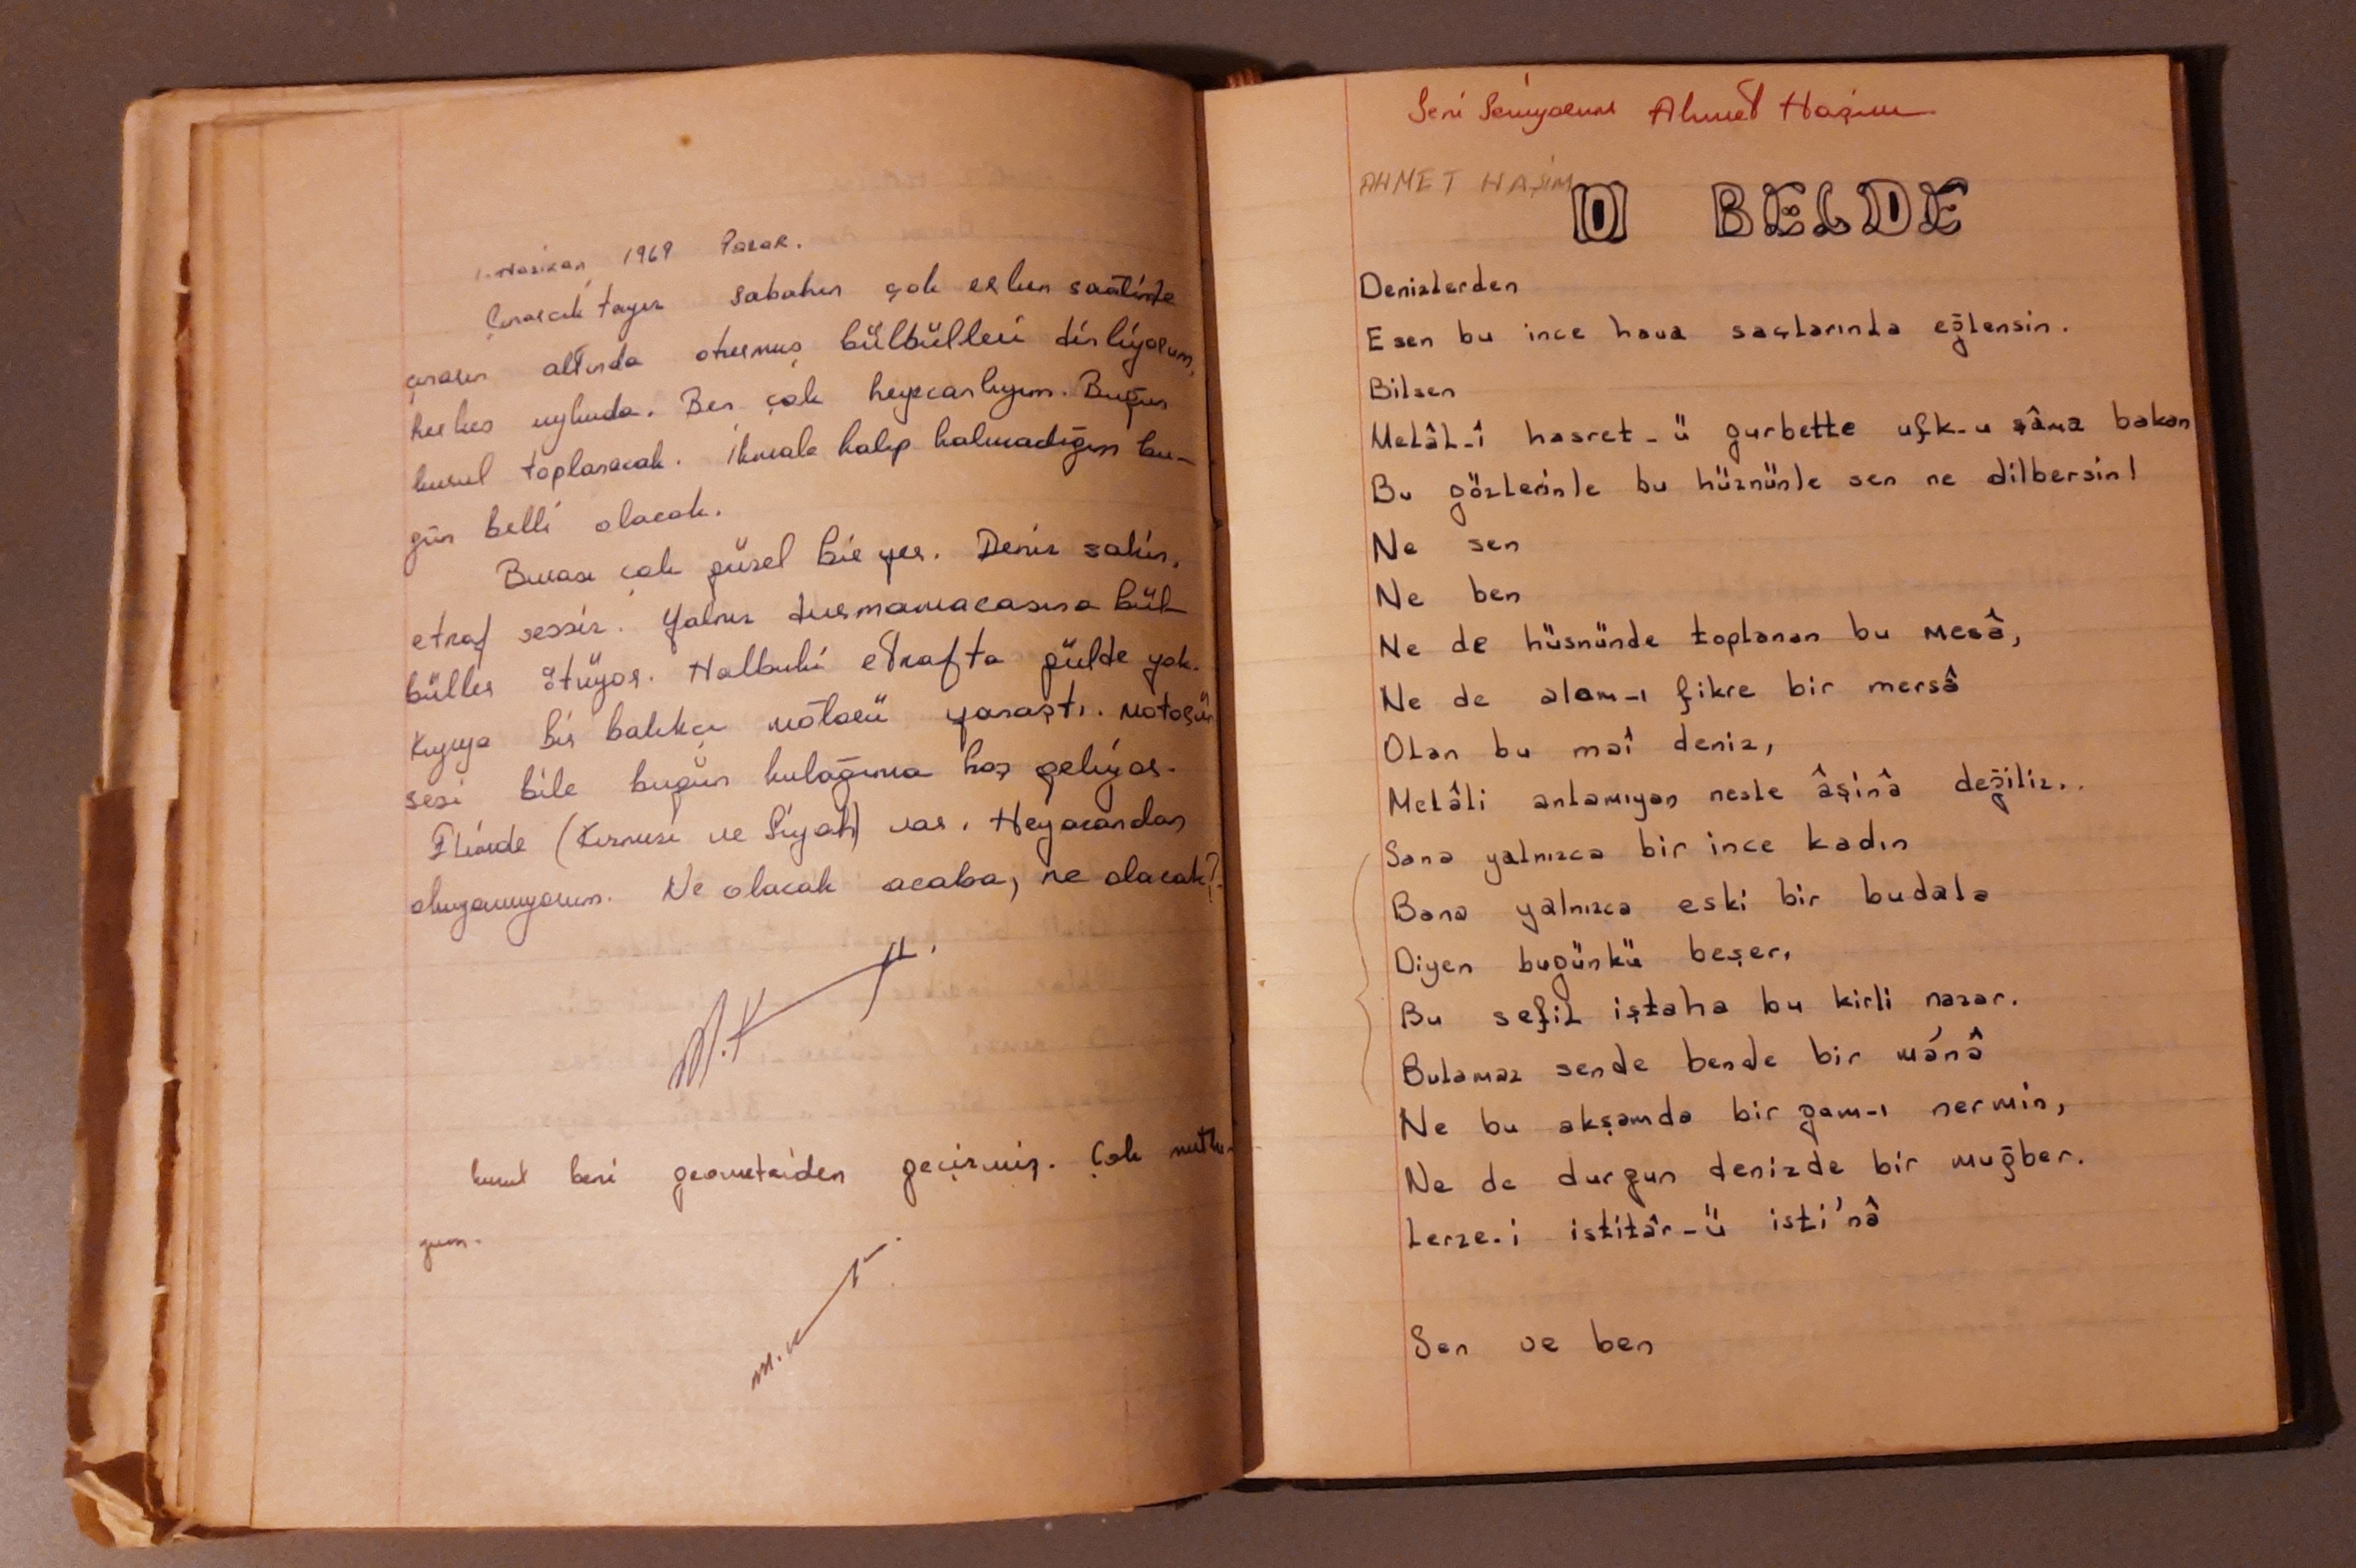 1. Haziran 1969 Pazar.
Çınarcıktayız sabahın çok erken saatinde
çınarın altında oturmuş bülbülleri dinliyorum,
herkes uykuda. Ben çok heyecanlıyım. Bugün
kurul toplanacak. İkmale kalıp kalmadığım bu-
gün belli olacak.
Burası çok güzel bir yer. Deniz sakin,
etraf sessiz. Yalnız durmamacasına bül
büller ötüyor. Halbuki etrafta gülde yok.
Kıyıya bir balıkçı motörü yanaştı. Motorün
sesi bile bugün kulağıma hoş geliyor.
Elimde (Kırmızı ve Siyah) var. Heyacandan
okuyamıyorum. Ne olacak acaba, ne olacak?
M.K
kurul beni geometriden geçirmiş. Çok mutlu-
yum.
M.K
Seni Seviyorum Ahmet Haşim
AHMET HAŞİM
O BELDE
Denizlerden
Esen bu ince hava saçlarında eğlensin.
Bilsen
Melâl-î hasret-ü gurbette ufk-u şâma bakan
Bu gözlerinle bu hüznünle sen ne dilbersin!
Ne sen
Ne ben
Ne de hüsnünde toplanan bu mesâ,
Ne de alam-ı fikre bir mersâ
Olan bu maî deniz,
Melâli anlamıyan nesle âşinâ değiliz..
Sana yalnızca bir ince kadın
Bana yalnızca eski bir budala
Diyen bugünkü beşer,
Bu sefil iştaha bu kirli nazar.
Bulamaz sende bende bir mánâ
Ne bu akşamda bir gam-ı nermin,
Ne de durgun denizde bir muğber.
Lerze-i istitâr-ü isti'nâ
Sen ve ben